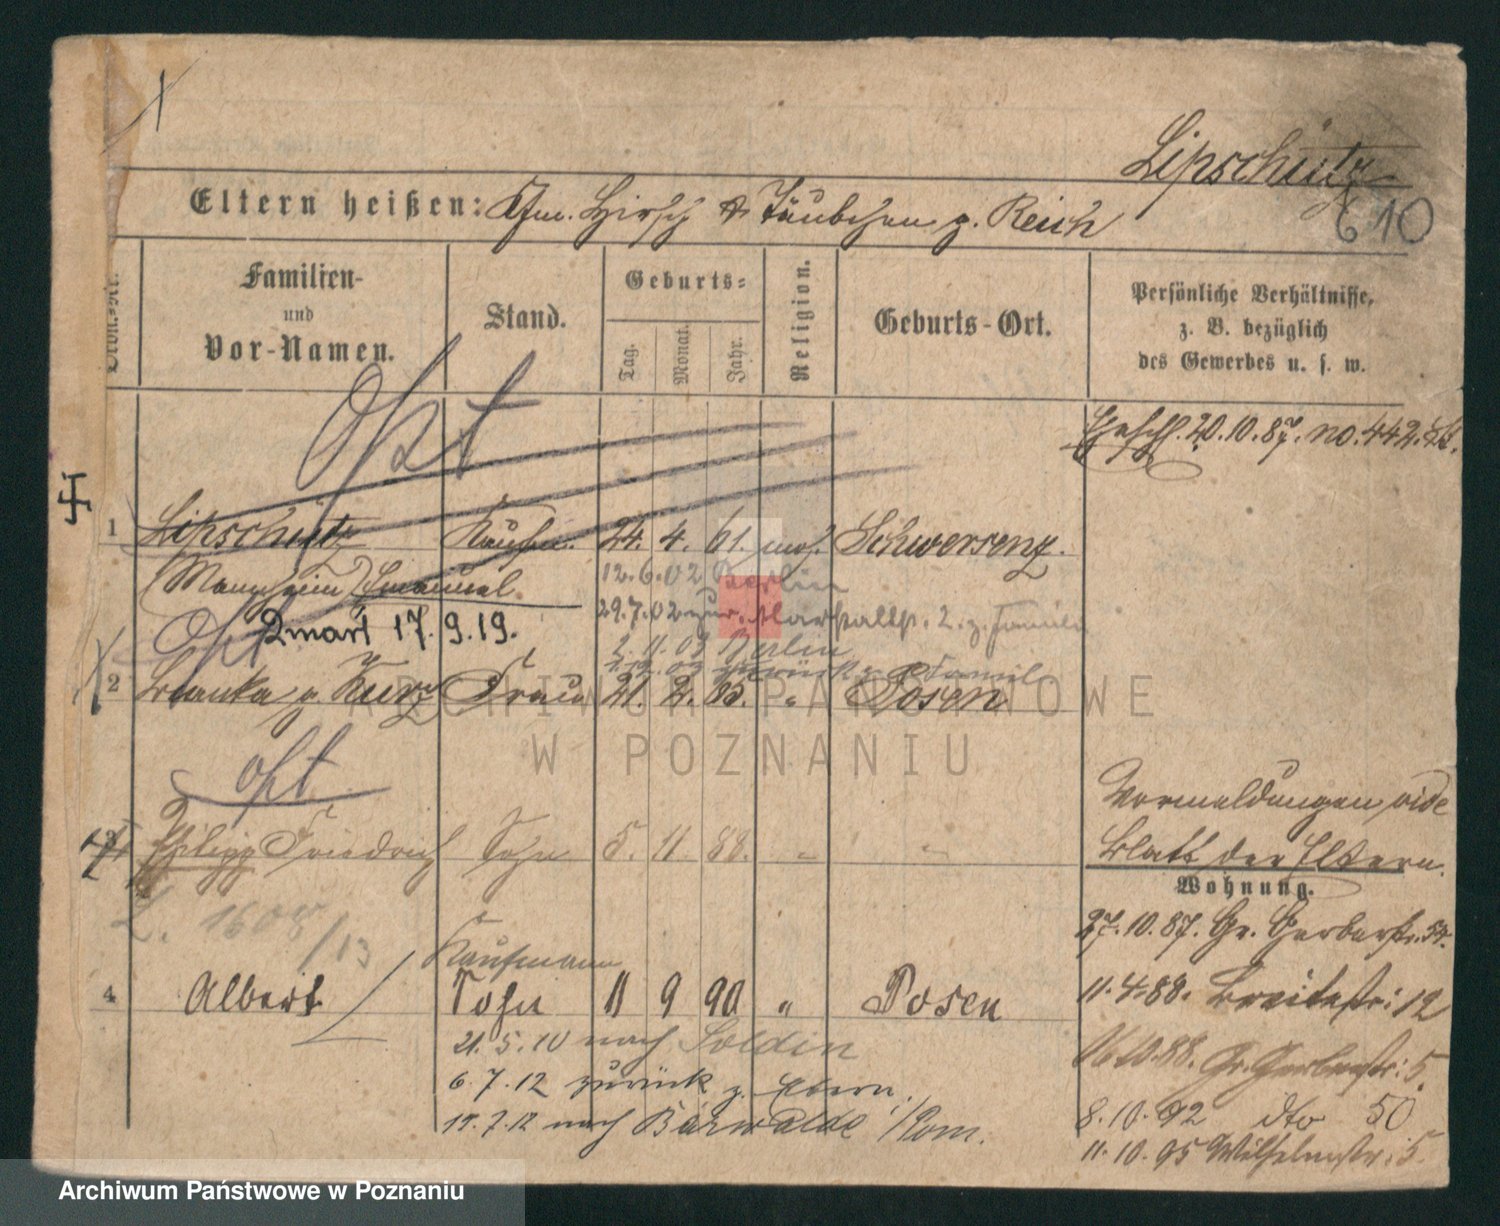 Lipschütz
Eltern heißen: Kfm. Hirsch & Täubchen g. Reich
610
Ordn.-Nr.
Familien-
und
Vor-Namen.
Stand.
Geburts-
Tag.
Monat.
Jahr.
Religion.
Geburts-Ort.
Persönliche Verhältnisse,
z. B. bezüglich
des Gewerbes u. s. w.
20.10.87. no. 442.
Opt
1 Lipschütz Kaufm. 24. 4. 61. mos. Schwersenz.
(Mannheim) Emanuel
12.6.02 Berlin
29.7.02 zur. 2. z. Familie
Opt
2 mari 17.9.19.
2.11.03 Berlin
zurück z. Famil
2 Bianka g. Kurz Frau 21. 2. 65. " Posen
Opt
3 Philipp Friedrich Sohn 5. 11. 88. " "
Vormeldungen vide
Blatt der Eltern.
Wohnung.
27.10.87. Gr. Gerberstr. 54.
1608/13
Kaufmann
4 Albert Sohn 11 9 90 " Posen
11.4.88. Breitestr: 12
21.5.10 nach Soldin
16.10.88. Gr. Gerberstr: 5.
6.7.12 zurück z. Eltern.
8.10.92 dto 50
nach Bärwalde i/Pom.
11.10.95 Wilhelmstr: 5.
ARCHIWUM PAŃSTWOWE
W POZNANIU
Archiwum Państwowe w Poznaniu